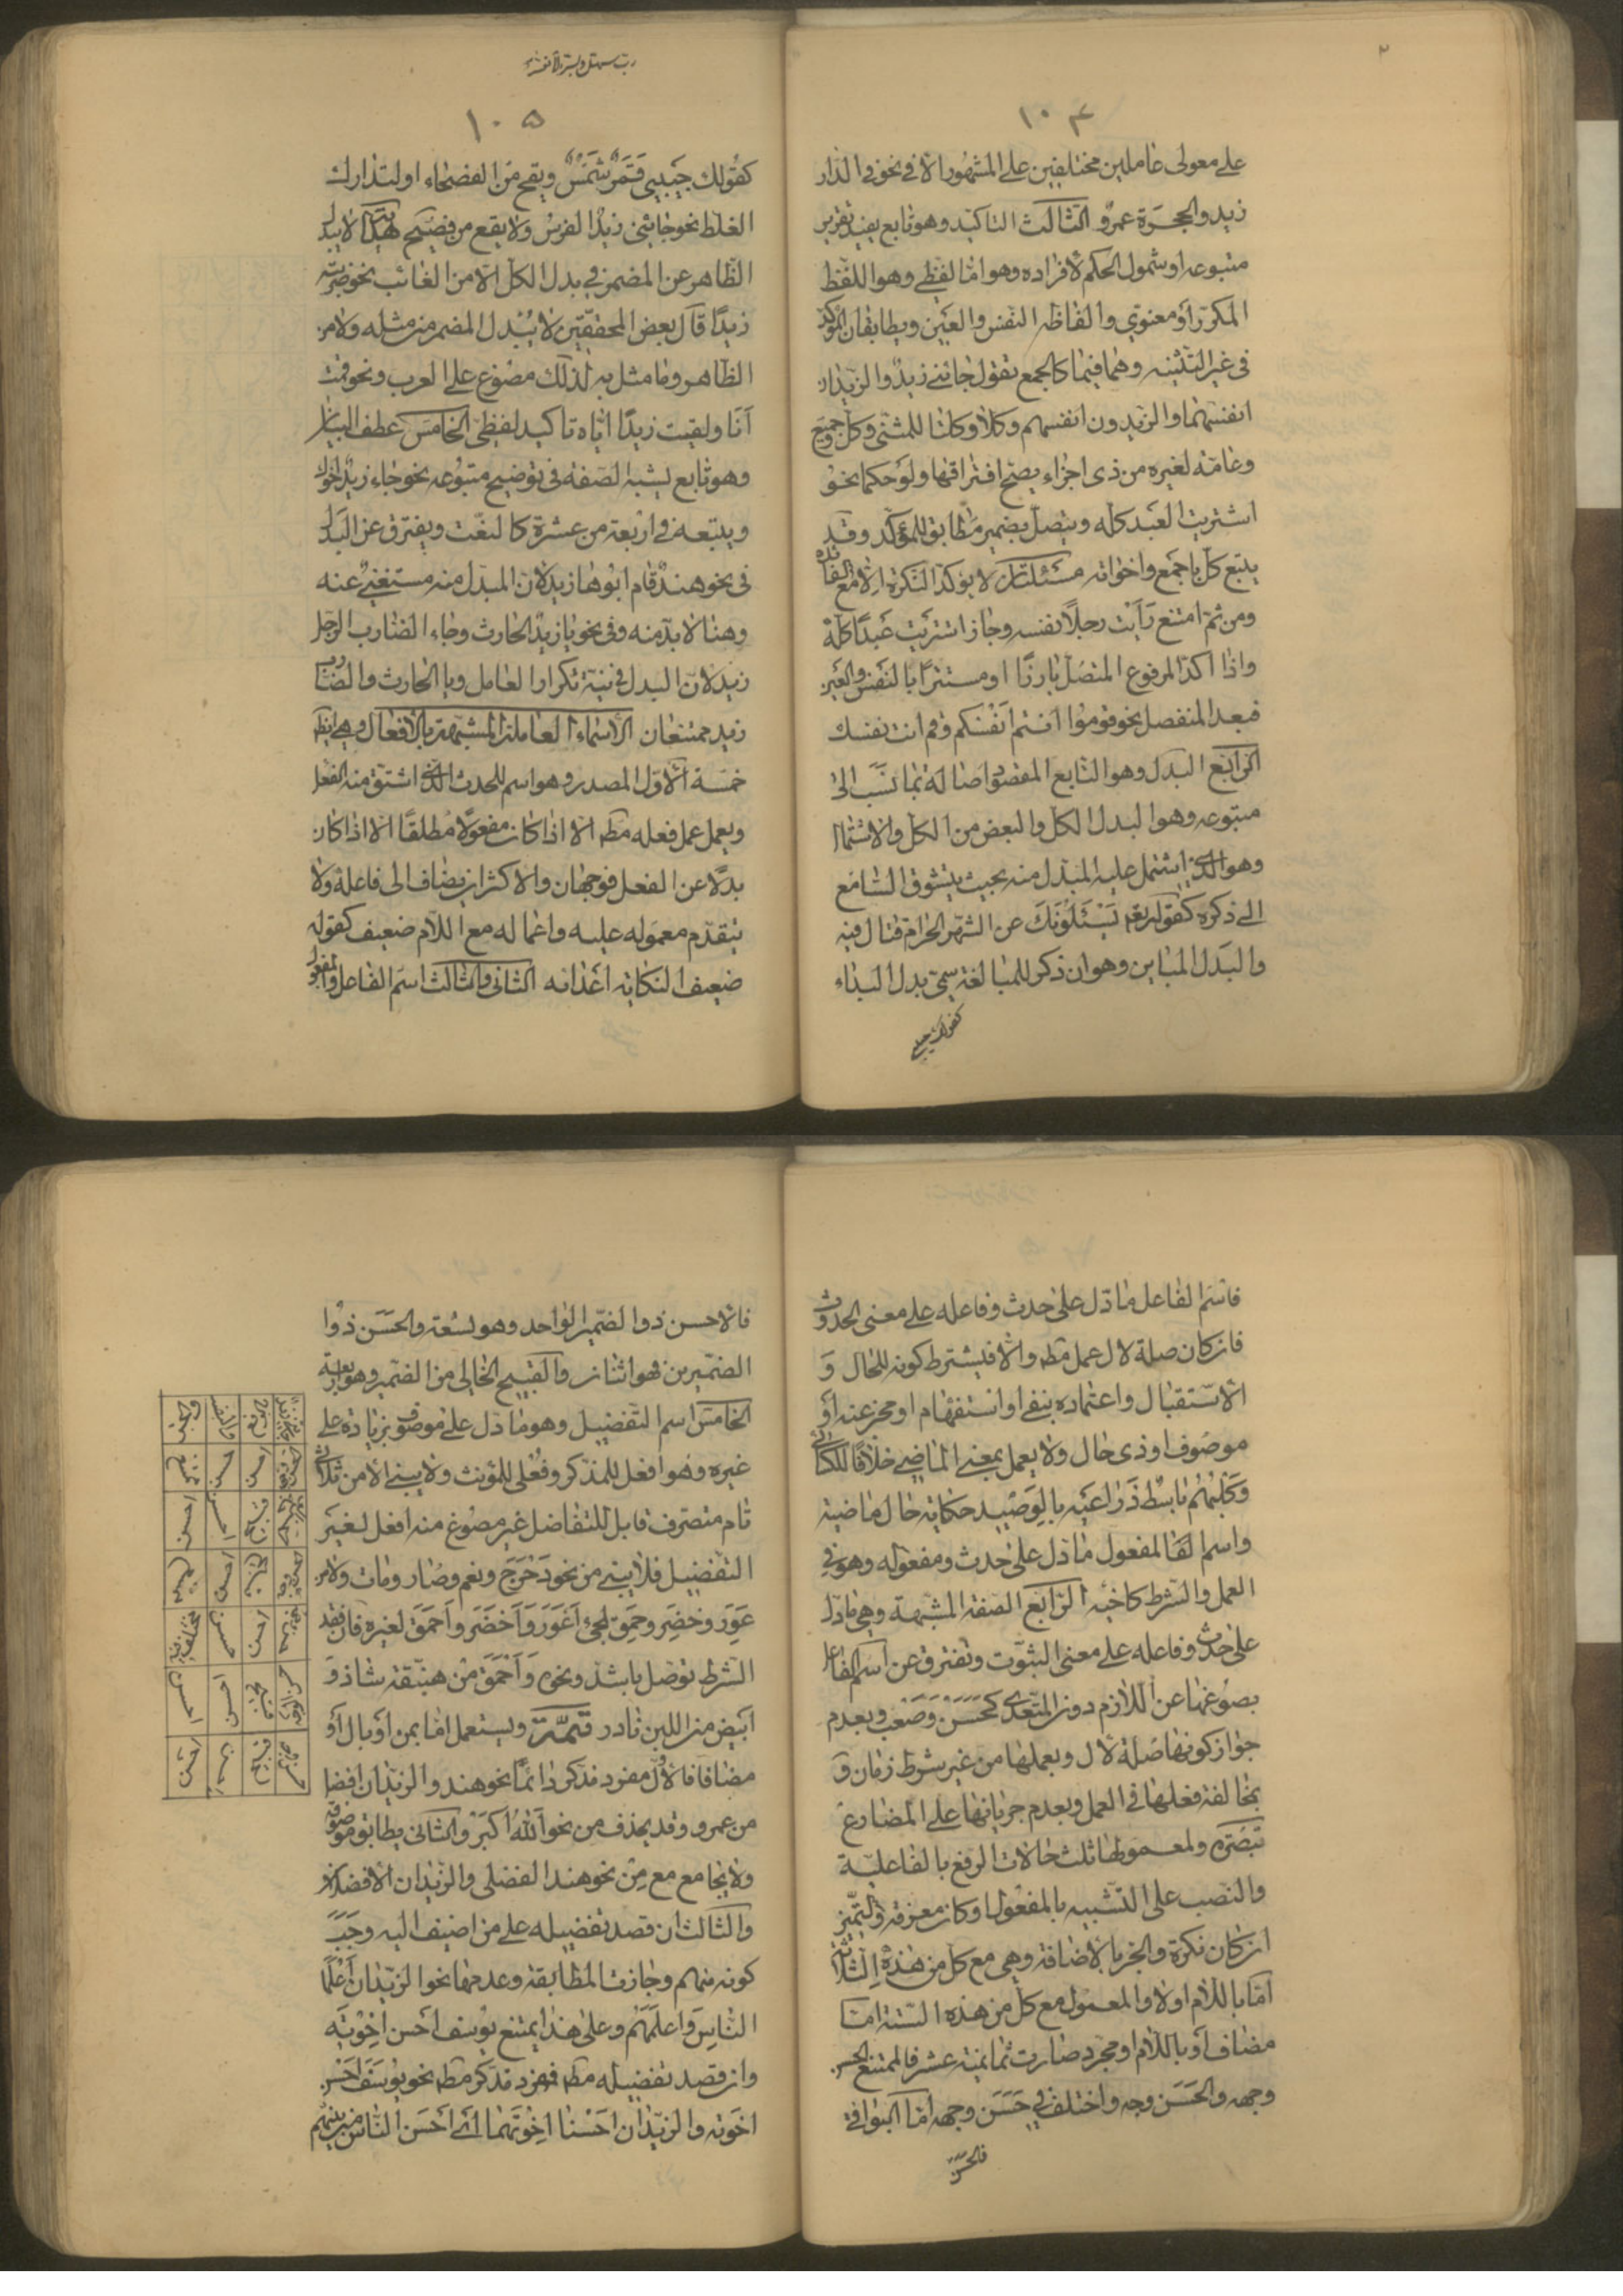 ١٠٤
على معمولى عاملين مختلفين على المشهور الا فى نحو فى الدار
زيد والحجرة عمرو الثالث التاكيد وهو تابع يفيد تقرير
متبوعه او شمول الحكم لافراده وهو اما لفظى وهو اللفظ
المكرر او معنوى والفاظه النفس والعين ويطابقان المؤكد
فى غير التثنيه وهما فيها كالجمع تقول جائنى زيد والزيدان
انفسهما والزيدون انفسهم وكلا وكلتا للمثنى وكل وجميع
وعامة لغيره من ذى اجزاء يصح افتراقها ولو حكما نحو
اشتريت العبد كله ويتصل بضمير مطابق للمؤكد وقد
يتبع كل باجمع واخواته مسئلتان لا يؤكد النكرة الا مع الفائدة
ومن ثم امتنع رايت رجلا نفسه وجاز اشتريت عبدا كله
واذا اكد المرفوع المتصل بارزا او مستترا بالنفس والعين
فبعد المنفصل نحو قوموا انتم انفسكم وقم انت نفسك
الرابع البدل وهو التابع المقصود اصالة بما نسب الى
متبوعه وهو البدل الكل والبعض من الكل والاشتمال
وهو الذى اشتمل عليه المبدل منه بحيث يتشوق السامع
الى ذكره كقوله تعه يسئلونك عن الشهر الحرام قتال فيه
والبدل المباين وهو ان ذكر للمبالغة سمى بدل البداء
كقولك حبيبى
رب سهل ويسر ولا تعسر
١٠٥
كقولك حبيبى قمر شمس ويقع من الفصحاء او لتدارك
الغلط نحو جائنى زيد الفرس ولا يقع من فصيح هداية لا يبدل
الظاهر عن المضمر فى بدل الكل الا من الغائب نحو ضربته
زيدا قال بعض المحققين لا يبدل المضمر من مثله ولا من
الظاهر وما مثل به لذلك مصنوع على العرب ونحو قمت
انا ولقيت زيدا اياه تاكيد لفظى الخامس عطف البيان
وهو تابع يشبه الصفة فى توضيح متبوعه نحو جاء زيد اخوك
ويتبعه فى اربعة من عشرة كالنعت ويفترق عن البدل
فى نحو هند قام ابوها زيد لان المبدل منه مستغنى عنه
وهنا لا بد منه وفى نحو يا زيد الحارث وجاء الضارب الرجل
زيد لان البدل فى نية تكرار العامل ويا الحارث والضارب
زيد ممتنعان الاسماء العاملة المشبهة بالافعال وهى ايضا
خمسة الاول المصدر وهو اسم للحدث الذى اشتق منه الفعل
ويعمل عمل فعله مطه الا اذا كان مفعولا مطلقا الا اذا كان
بدلا عن الفعل فوجهان والاكثر ان يضاف الى فاعله ولا
يتقدم معموله عليه واعماله مع اللام ضعيف كقوله
ضعيف النكاية اعدائه الثانى والثالث اسم الفاعل والمفعول
فاسم الفاعل ما دل على حدث وفاعله على معنى الحدوث
فان كان صلة لال عمل مطه والا فيشترط كونه للحال و
الاستقبال واعتماده بنفى او استفهام او مخبر عنه او
موصوف او ذى حال ولا يعمل بمعنى الماضى خلافا للكسائى
وكلبهم باسط ذراعيه بالوصيد حكاية حال ماضية
واسم المفعول ما دل على حدث ومفعوله وهو فى
العمل والشرط كاخيه الرابع الصفة المشبهة وهى ما دل
على حدث وفاعله على معنى الثبوت وتفترق عن اسم الفاعل
بصوغها عن اللازم دون المتعدى كحسن وصعب وبعدم
جواز كونها صلة لال وبعملها من غير شرط زمان و
بمخالفة فعلها فى العمل وبعدم جريانها على المضارع
تبصرة ولمعمولها ثلث حالات الرفع بالفاعلية
والنصب على التشبيه بالمفعول ان كان معرفة والتميز
ان كان نكرة والجر بالاضافة وهى مع كل من هذه الثلاثة
اما باللام اولا والمعمول مع كل من هذه الستة اما
مضاف او باللام او مجرد صارت ثمانية عشر فالممتنع الحسن
وجهه والحسن وجه واختلف فى حسن وجهه اما البواقى
فالاحسن ذو الضمير الواحد وهو تسعة والحسن ذو
الضميرين فهو اثنان والقبيح الخالى من الضمير وهو اربعة
الخامس اسم التفضيل وهو ما دل على موصوف بزيادة على
غيره وهو افعل للمذكر وفعلى للمؤنث ولا يبنى الا من ثلاثى
تام متصرف قابل للتفاضل غير مصوغ منه افعل لغير
التفضيل فلا يبنى من نحو دحرج ونعم وصار ومات ولا من
عور وخضر وحمق لمجئ اعور واخضر واحمق لغيره فان فقد
الشرط توصل باشد ونحوه واحمق من هبنقة شاذ و
ابيض من اللبن نادر تتمة ويستعمل اما بمن او بال او
مضافا فالاول مفرد مذكر دائما نحو هند والزيدان افضل
من عمرو وقد يحذف من نحو الله اكبر والثانى يطابق موصوفه
ولا يجامع مع من نحو هند الفضلى والزيدان الافضلان
والثالث ان قصد تفضيله على من اضيف اليه وجب
كونه منهم وجازت المطابقة وعدمها نحو الزيدان اعلما
الناس واعلمهم وعلى هذا يمتنع يوسف احسن اخوته
وان قصد تفضيله مطه فمفرد مذكر مطه نحو يوسف احسن
اخوته والزيدان احسنا اخوتهما اى احسن الناس من بينهم